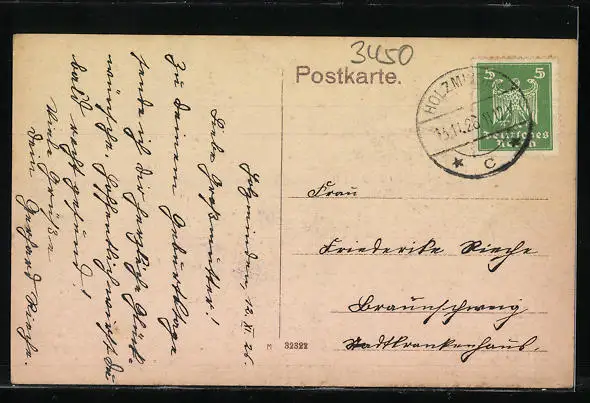 3450
Postkarte.
HOLZMI
15.11.26
* c *
5 5
Deutsches
Reich
Holzminden, 12. XI. 26.
Liebe Großmutter!
Zu Deinem Geburtstage
sende ich die herzliche Glück-
wünsche. Hoffentlich wirst Du
bald recht gesund!
Viele Grüße
Dein Gerhard Rieche.
Frau
Friederike Rieche
Braunschweig
Stadtkrankenhaus.
M 32322